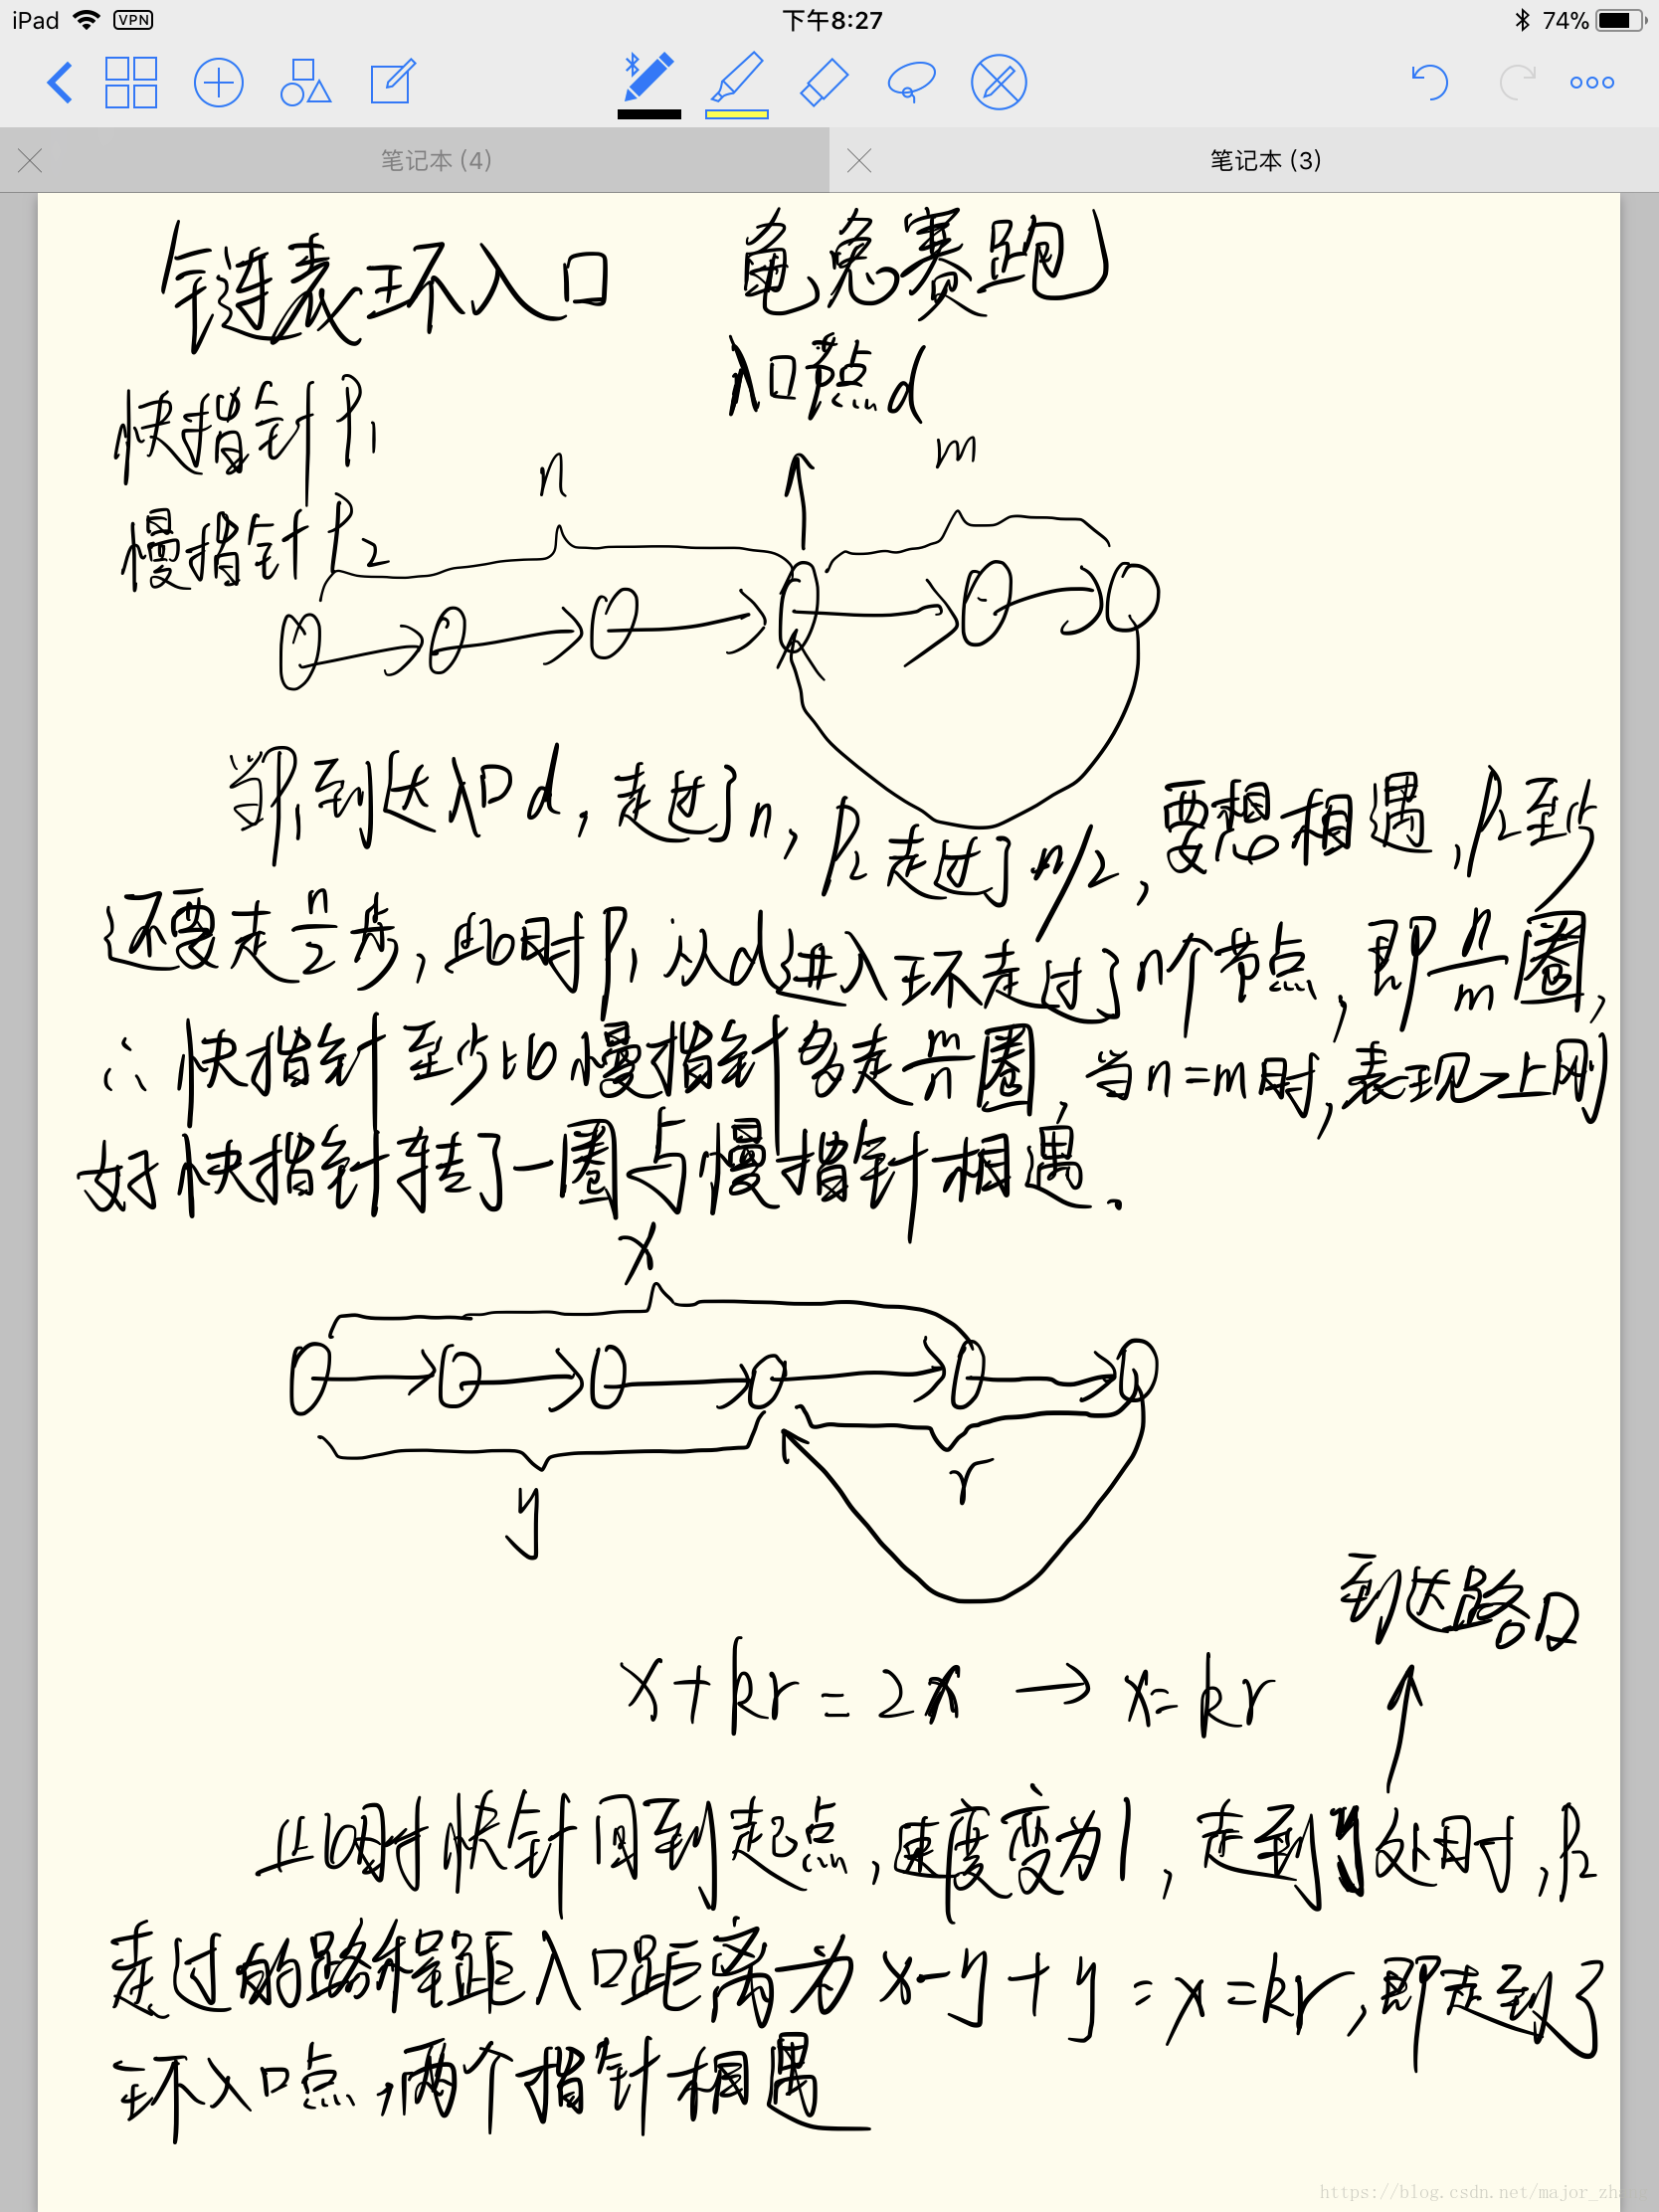 iPad VPN 下午8:27 74%
笔记本 (4) 笔记本 (3)
链表环入口 龟兔赛跑
入口节点d
快指针P1
n m
慢指针P2
当P1到达入口d,走过了n,P2走过了n/2,要想相遇,P2至少
还要走n/2步,此时P1从d进入环走过了n个节点,即n/m圈,
∴快指针至少比慢指针多走m/n圈,当n=m时,表现上刚
好快指针转了一圈与慢指针相遇.
x
r
y
到达路口
x+kr=2x → x=kr
此时快针回到起点,速度变为1,走到y处用时,P2
走过的路程距入口距离为x-y+y=x=kr,即走到了
环入口点,两个指针相遇